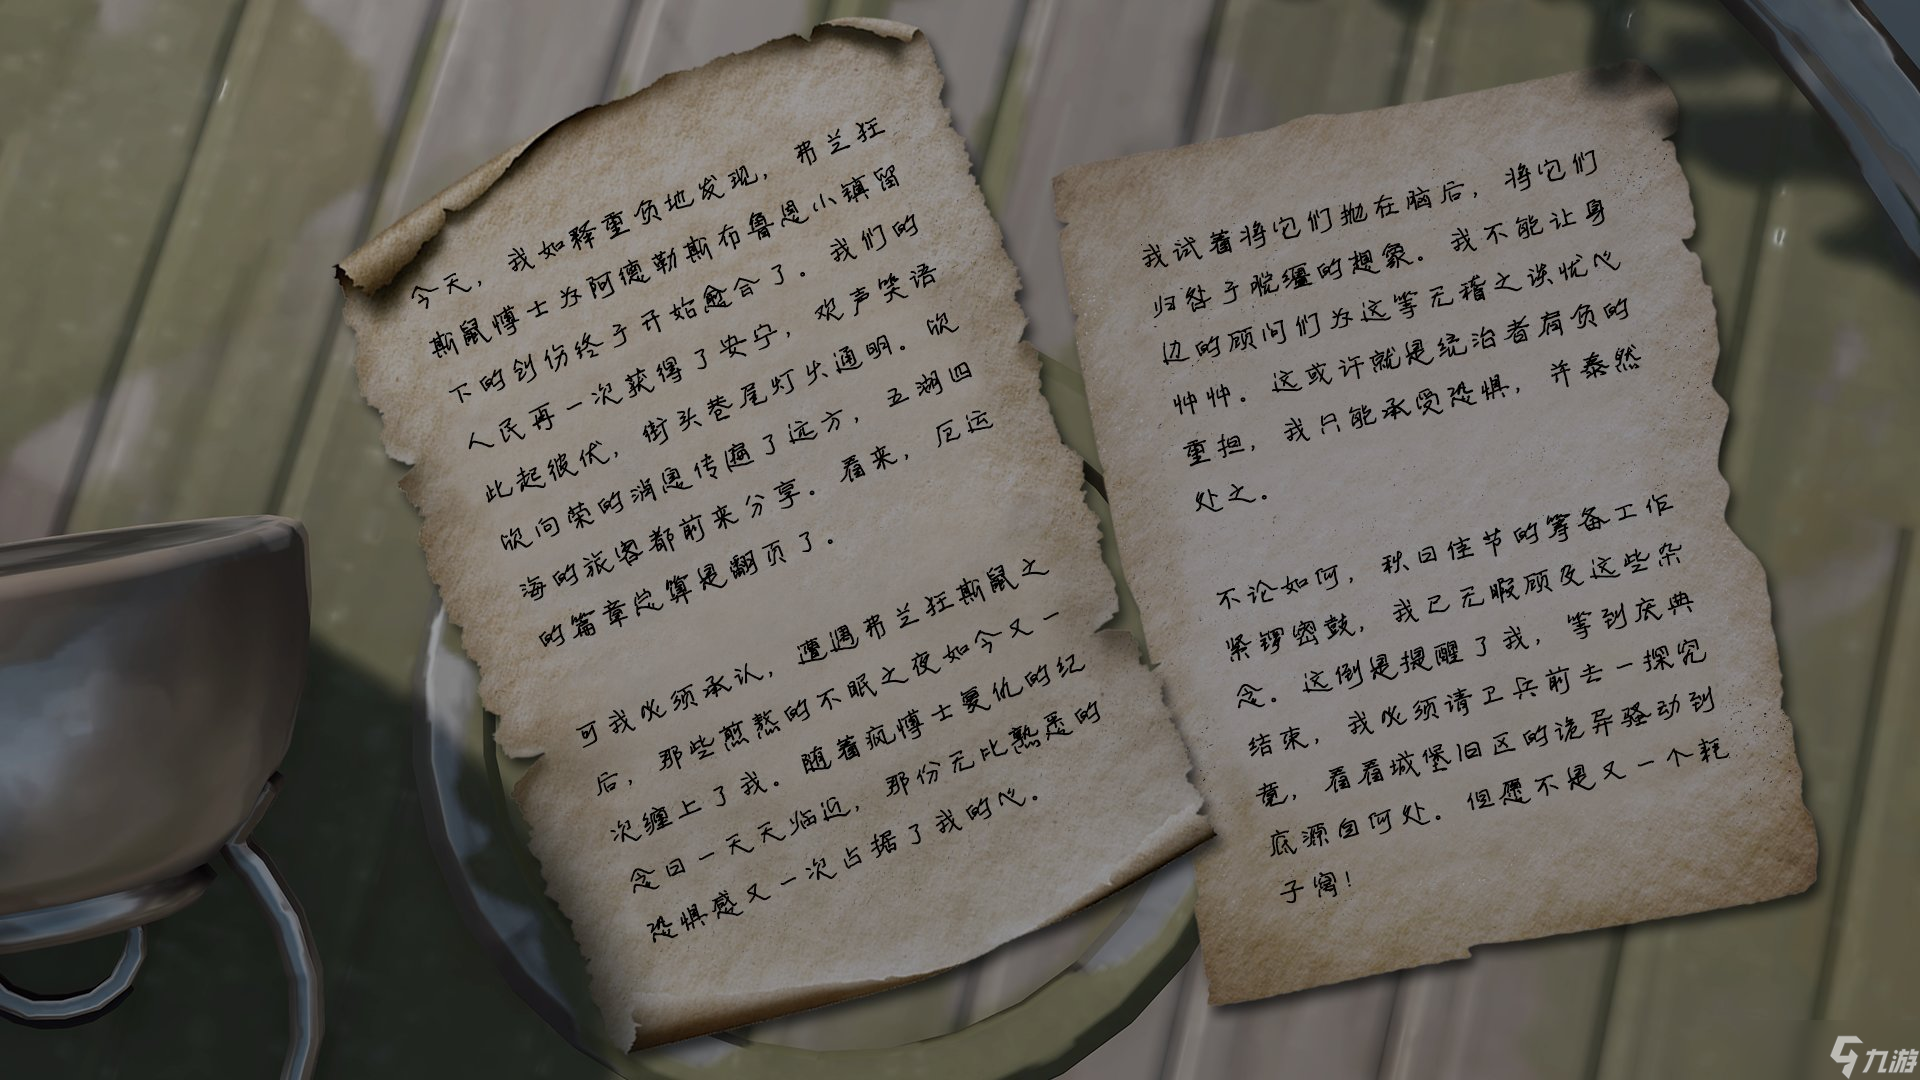 今天，我如释重负地发现，弗兰狂
斯鼠博士为阿德勒斯布鲁恩小镇留
下的创伤终于开始愈合了。我们的
人民再一次获得了安宁，欢声笑语
此起彼伏，街头巷尾灯火通明。欣
欣向荣的消息传遍了远方，五湖四
海的旅客都前来分享。看来，厄运
的篇章总算是翻页了。
可我必须承认，遭遇弗兰狂斯鼠之
后，那些煎熬的不眠之夜如今又一
次缠上了我。随着疯博士复仇的纪
念日一天天临近，那份无比熟悉的
恐惧感又一次占据了我的心。
我试着将它们抛在脑后，将它们
归咎于脱缰的想象。我不能让身
边的顾问们为这等无稽之谈忧心
忡忡。这或许就是统治者肩负的
重担，我只能承受恐惧，并泰然
处之。
不论如何，秋日佳节的筹备工作
紧锣密鼓，我已无暇顾及这些杂
念。这倒是提醒了我，等到庆典
结束，我必须请卫兵前去一探究
竟，看看城堡旧区的诡异骚动到
底源自何处。但愿不是又一个耗
子窝！
九游